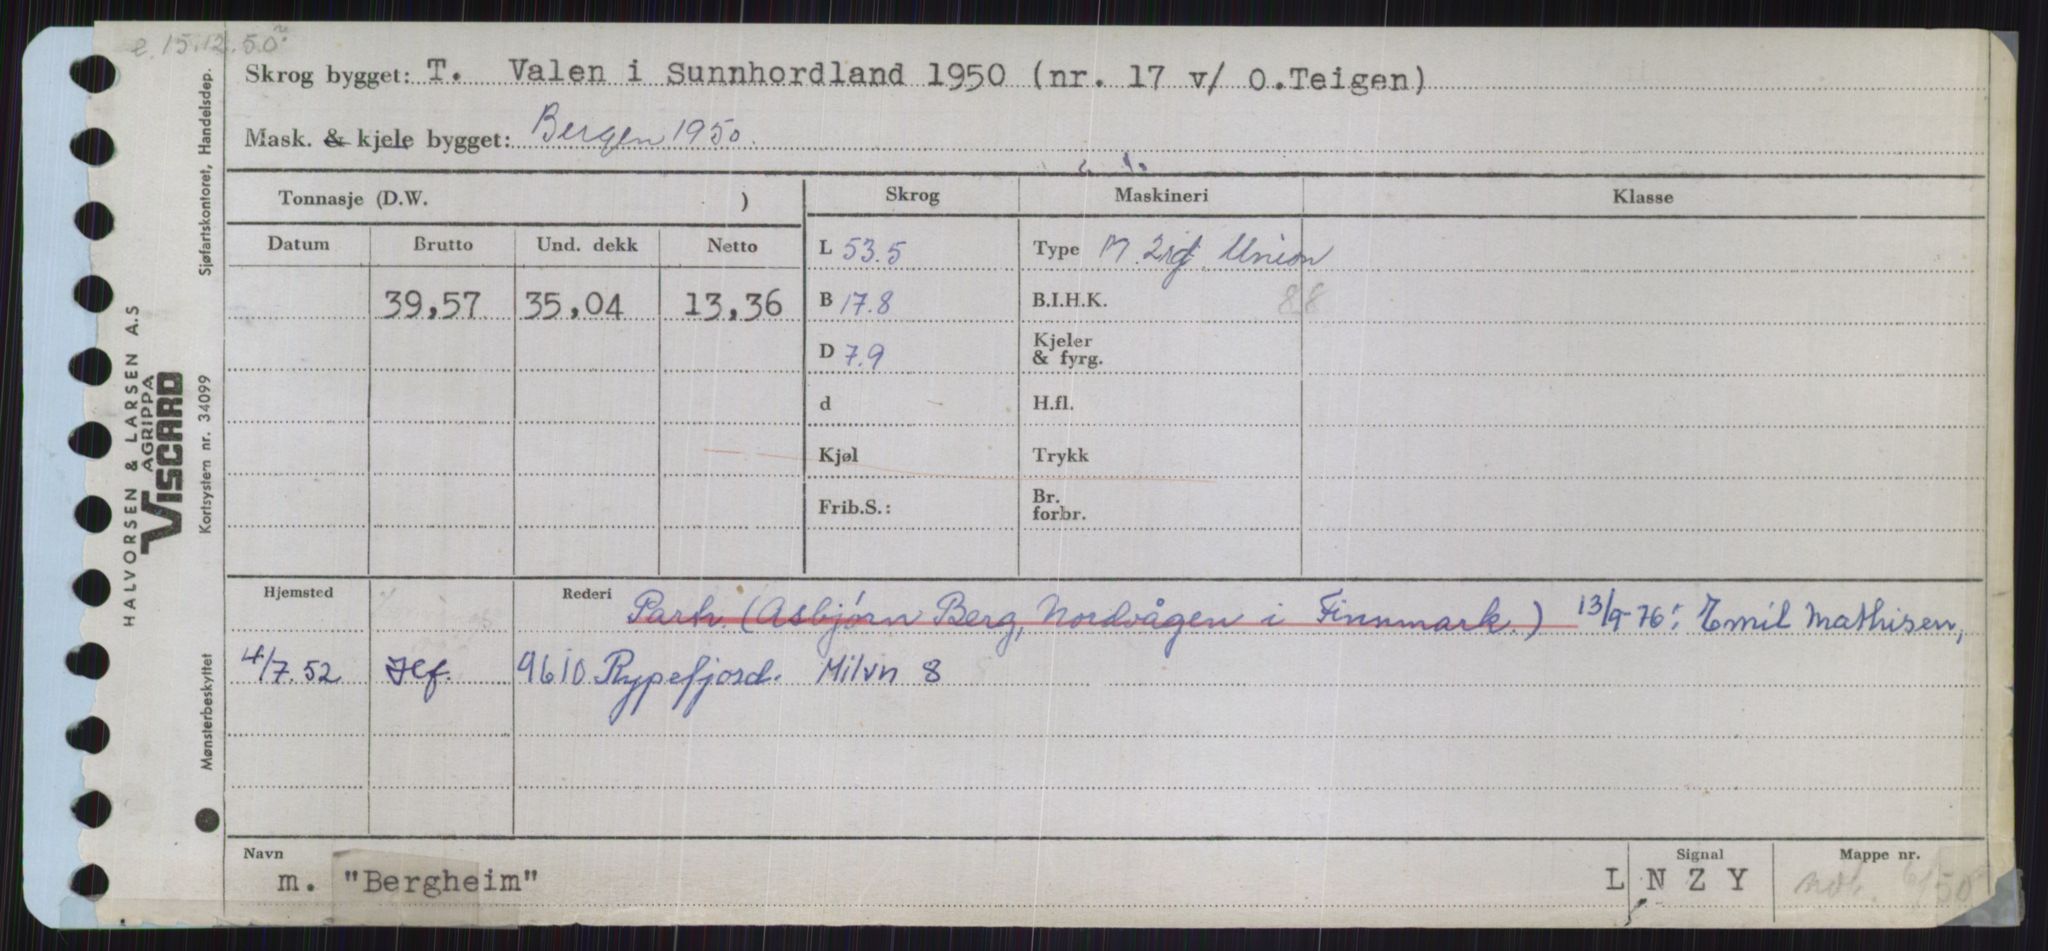 e. 15.12.50
Skrog bygget: T. Valen i Sunnhordland 1950 (nr. 17 v/ O.Teigen)
Mask. & kjele bygget: Bergen 1950.
Tonnasje (D.W. )
Skrog
Maskineri
Klasse
Datum
Brutto
Und. dekk
Netto
39,57
35,04
13,36
L 53.5
B 17.8
D 7.9
d
Kjøl
Frib.S.:
Type M. Union
B.I.H.K. 88
Kjeler
& fyrg.
H.fl.
Trykk
Br.
forbr.
Hjemsted
Rederi
Park. (Asbjørn Berg, Nordvågen i Finnmark.) 13/9-76: Emil Mathisen,
4/7.52 Hf. 9610 Rypefjord. Milvn 8
Navn
m. "Bergheim"
Signal
L N Z Y
Mappe nr.
Sjøfartskontoret, Handelsdep.
Kortsystem nr. 34099
Mønsterbeskyttet
HALVORSEN & LARSEN A.S
AGRIPPA
VISCARD